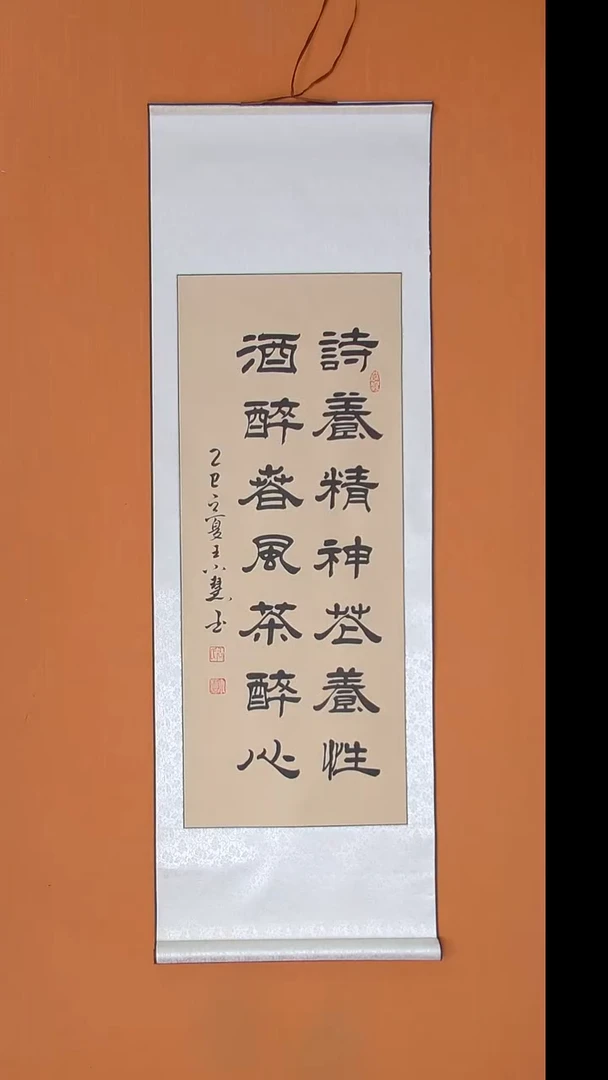 詩養精神花養性
酒醉春風茶醉心
乙巳立夏王小慧书